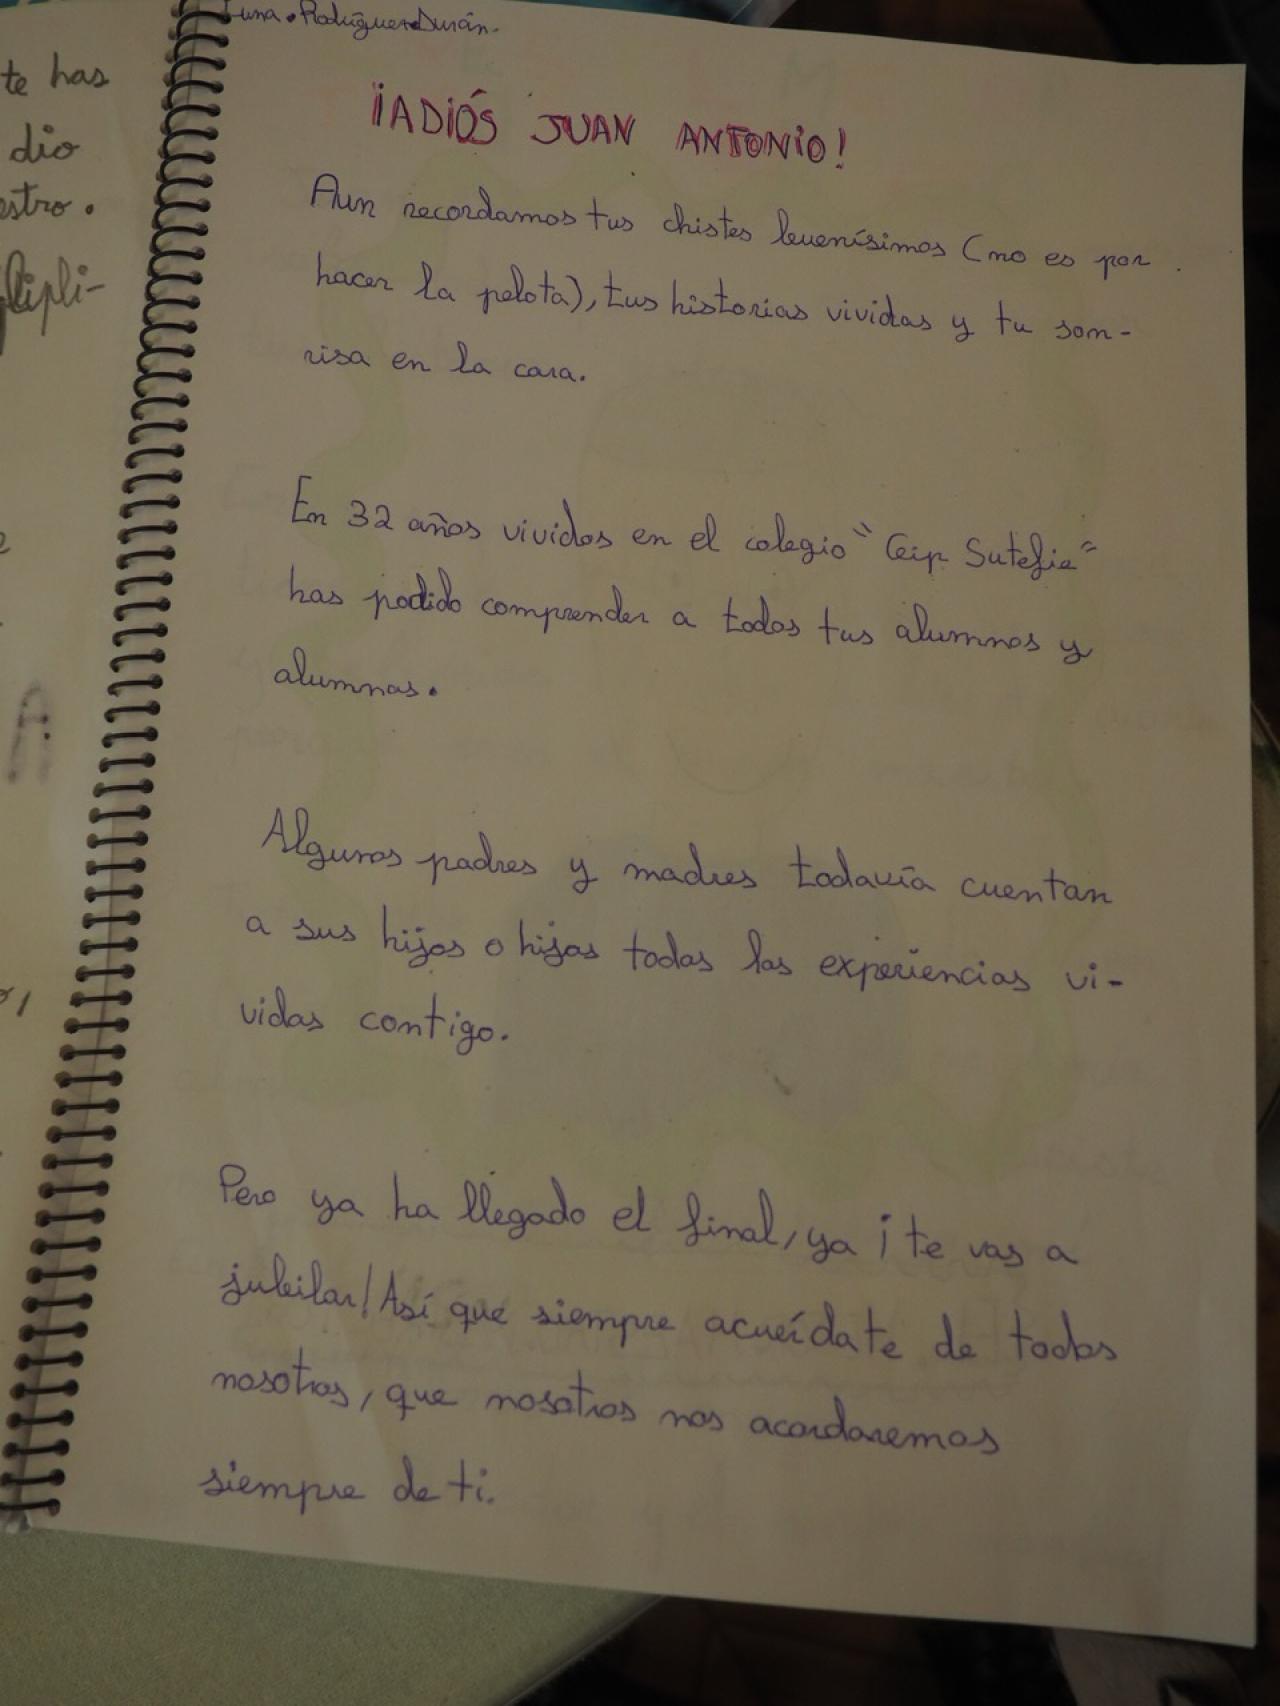 Luna Rodríguez Durán.
¡ADIÓS JUAN ANTONIO!
Aun recordamos tus chistes buenísimos (no es por
hacer la pelota), tus historias vividas y tu son-
risa en la cara.
En 32 años vividos en el colegio "Ceip Sutefie"
has podido comprender a todos tus alumnos y
alumnas.
Algunos padres y madres todavía cuentan
a sus hijos o hijas todas las experiencias vi-
vidas contigo.
Pero ya ha llegado el final, ya ¡te vas a
jubilar! Así que siempre acuérdate de todos
nosotros, que nosotros nos acordaremos
siempre de ti.
te has
dio
estro.
A